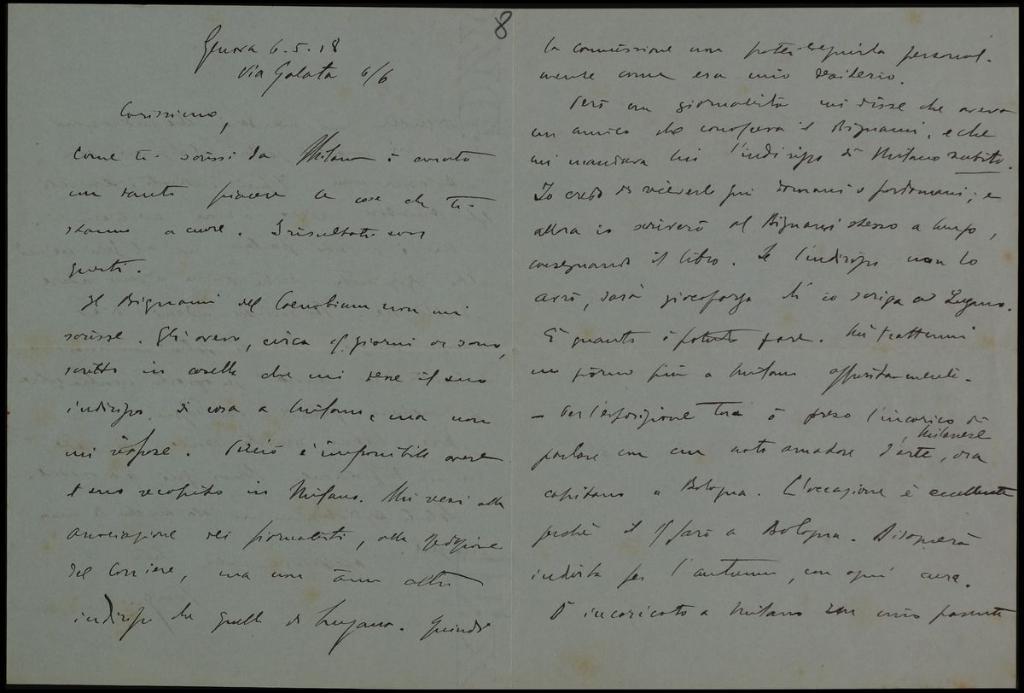 8
Genova 6.5.18
Via Galata 6/6
Carissimo,
come ti scrissi da Milano ò curato
con tanto piacere le cose che ti
stanno a cuore. I risultati son
questi.
Il Bignami del Coenobium non mi
scrisse. Gli avevo, circa giorni or sono,
scritto in che mi desse il suo
indirizzo di casa a Milano, ma non
mi rispose. Perciò è impossibile avere
il suo recapito in Milano. Mi recai alla
associazione dei giornalisti, alla redazione
del Corriere, ma non ànno altro
indirizzo che quello di Lugano. Quindi
la commissione non potei eseguirla personal-
mente come era mio desiderio.
Però un giornalista mi disse che aveva
un amico che conosceva il Bignami, e che
mi mandava lui l'indirizzo di Milano subito.
Io credo di riceverlo qui domani o posdomani; e
allora io scriverò al Bignami stesso a lungo,
consegnando il libro. Se l'indirizzo non lo
avrò, sarà giocoforza ch'io scriva a Lugano.
È quanto ò potuto fare. Mi trattenni
un giorno più a Milano appositamente.
— Per l'esposizione tua ò preso l'incarico di
parlare con un noto amatore d'arte, milanese, ora
capitano a Bologna. L'occasione è eccellente
perchè il farà a Bologna. Bisognerà
indirla per l'autunno, con ogni cura.
Ò incaricato a Milano un mio parente